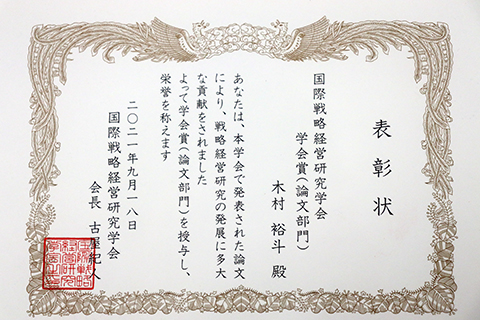 表彰状
国際戦略経営研究学会
学会賞(論文部門)
木村 裕斗 殿
あなたは、本学会で発表された論文
により、戦略経営研究の発展に多大
な貢献をされました
よって学会賞(論文部門)を授与し、
栄誉を称えます
二〇二一年九月一八日
国際戦略経営研究学会
会長 古屋紀人